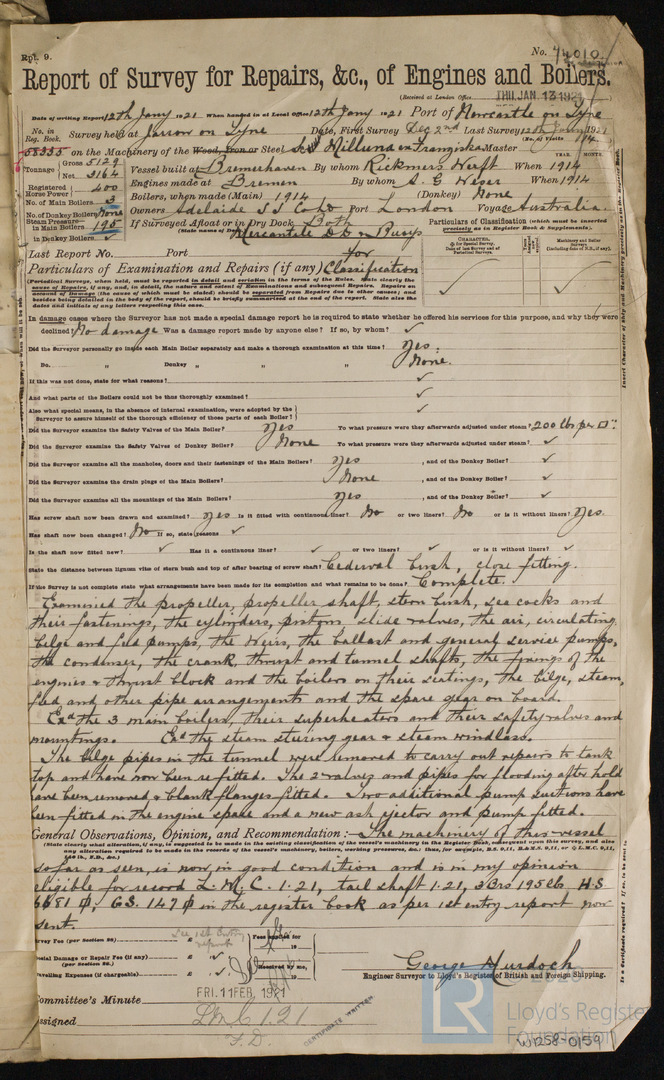 Rpt. 9.
No. 74010
Report of Survey for Repairs, &c., of Engines and Boilers.
(Received at London Office THU. JAN. 13 1921
Date of writing Report 12th Jany 1921 When handed in at Local Office 12th Jany 1921 Port of Newcastle on Tyne
No. in Reg. Book. Survey held at Jarrow on Tyne Date, First Survey Dec 2nd Last Survey 12th Jany 1921
58355 on the Machinery of the Wood, Iron or Steel Master
Tonnage Gross 5129 Net 3164 Vessel built at Bremerhaven By whom Rickmers Werft When 1914
Registered Horse Power 400 Engines made at Bremen By whom A. G. Weser When 1914
No. of Main Boilers 3 Boilers, when made (Main) 1914 (Donkey) None
No. of Donkey Boilers None Owners Adelaide S.S. Co Ld Port London Voyage Australia.
Steam Pressure in Main Boilers 195 If Surveyed Afloat or in Dry Dock Both
(State name of Dock) Mercantile D.D. & Buoys
in Donkey Boilers ✓
Particulars of Classification (which must be inserted precisely as in Register Book & Supplements).
Last Report No. Port
Particulars of Examination and Repairs (if any) for Classification
(Periodical Surveys, when held, must be reported in detail and seriatim in the terms of the Rules.
In damage cases where the Surveyor has not made a special damage report he is required to state whether he offered his services for this purpose, and why they were
declined? No damage Was a damage report made by anyone else? If so, by whom? ✓
Did the Surveyor personally go inside each Main Boiler separately and make a thorough examination at this time? Yes.
Do. " Donkey " " " None.
If this was not done, state for what reasons? ✓
And what parts of the Boilers could not be thus thoroughly examined? ✓
Also what special means, in the absence of internal examination, were adopted by the
Surveyor to assure himself of the thorough efficiency of those parts of each Boiler? ✓
Did the Surveyor examine the Safety Valves of the Main Boiler? Yes To what pressure were they afterwards adjusted under steam? 200 lbs per □".
Did the Surveyor examine the Safety Valves of Donkey Boiler? None To what pressure were they afterwards adjusted under steam? ✓
Did the Surveyor examine all the manholes, doors and their fastenings of the Main Boilers? Yes , and of the Donkey Boiler? ✓
Did the Surveyor examine the drain plugs of the Main Boilers? None , and of the Donkey Boiler? ✓
Did the Surveyor examine all the mountings of the Main Boilers? Yes , and of the Donkey Boiler? ✓
Has screw shaft now been drawn and examined? Yes Is it fitted with continuous liner? No or two liners? No or is it without liners? Yes.
Has shaft now been changed? No If so, state reasons ✓
Is the shaft now fitted new? ✓ Has it a continuous liner? ✓ or two liners? ✓ or is it without liners? ✓
State the distance between lignum vitæ of stern bush and top of after bearing of screw shaft? Cedervall bush, close fitting.
If the Survey is not complete state what arrangements have been made for its completion and what remains to be done? Complete.
Examined the propeller, propeller shaft, stern bush, sea cocks and
their fastenings, the cylinders, pistons slide valves, the air, circulating
bilge and feed pumps, the Weirs, the ballast and general service pumps,
the condenser, the crank, thrust and tunnel shafts, the fixings of the
engines & thrust block and the boilers on their seatings, the bilge, steam,
feed and other pipe arrangements and the spare gear on board.
Exd the 3 main boilers, their superheaters and their safety valves and
mountings. Exd the steam steering gear & steam windlass.
The bilge pipes in the tunnel were removed to carry out repairs to tank
top and have now been refitted. The 2 valves and pipes for flooding after hold
have been removed & blank flanges fitted. Two additional pump suctions have
been fitted in the engine space and a new ash ejector and pump fitted.
General Observations, Opinion, and Recommendation:— The machinery of this vessel
so far as seen, is now in good condition and is in my opinion
eligible for record L.M.C. 1.21, tail shaft 1.21, 3Brs 195 lb H.S
6681 ф, G.S. 147 ф in the register book as per 1st entry report now
sent.
Survey Fee (per Section 28) £ see 1st Entry report
Special Damage or Repair Fee (if any) £ ✓
(per Section 28.)
Travelling Expenses (if chargeable) £ ✓
Fees applied for
Received by me,
George Murdoch
Engineer Surveyor to Lloyd's Register of British and Foreign Shipping.
Committee's Minute FRI. 11 FEB. 1921
Assigned LMC 1.21
F.D.
CERTIFICATE WRITTEN
LR
Lloyd's Register
Foundation
W1258-0159